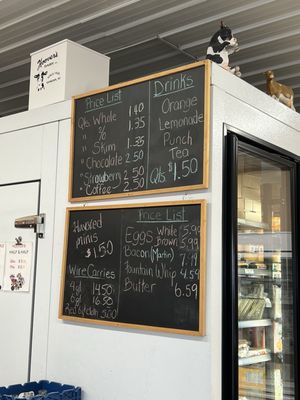 Hoover's
Price List
Qts. Whole 1.40
" % 1.35
" Skim 1.35
" Chocolate 2.50
" Strawberry 2.50
" Coffee 2.50
Drinks
Orange
Lemonade
Punch
Tea
Qts $1.50
Flavored
minis
$1.50
Wire Carries
4 qt 14.50
6 qt 16.50
Price List
Eggs Whole 5.99
Brown 5.99
Bacon (Martin) 7.19
Mountain Whip 4.59
Butter 6.59